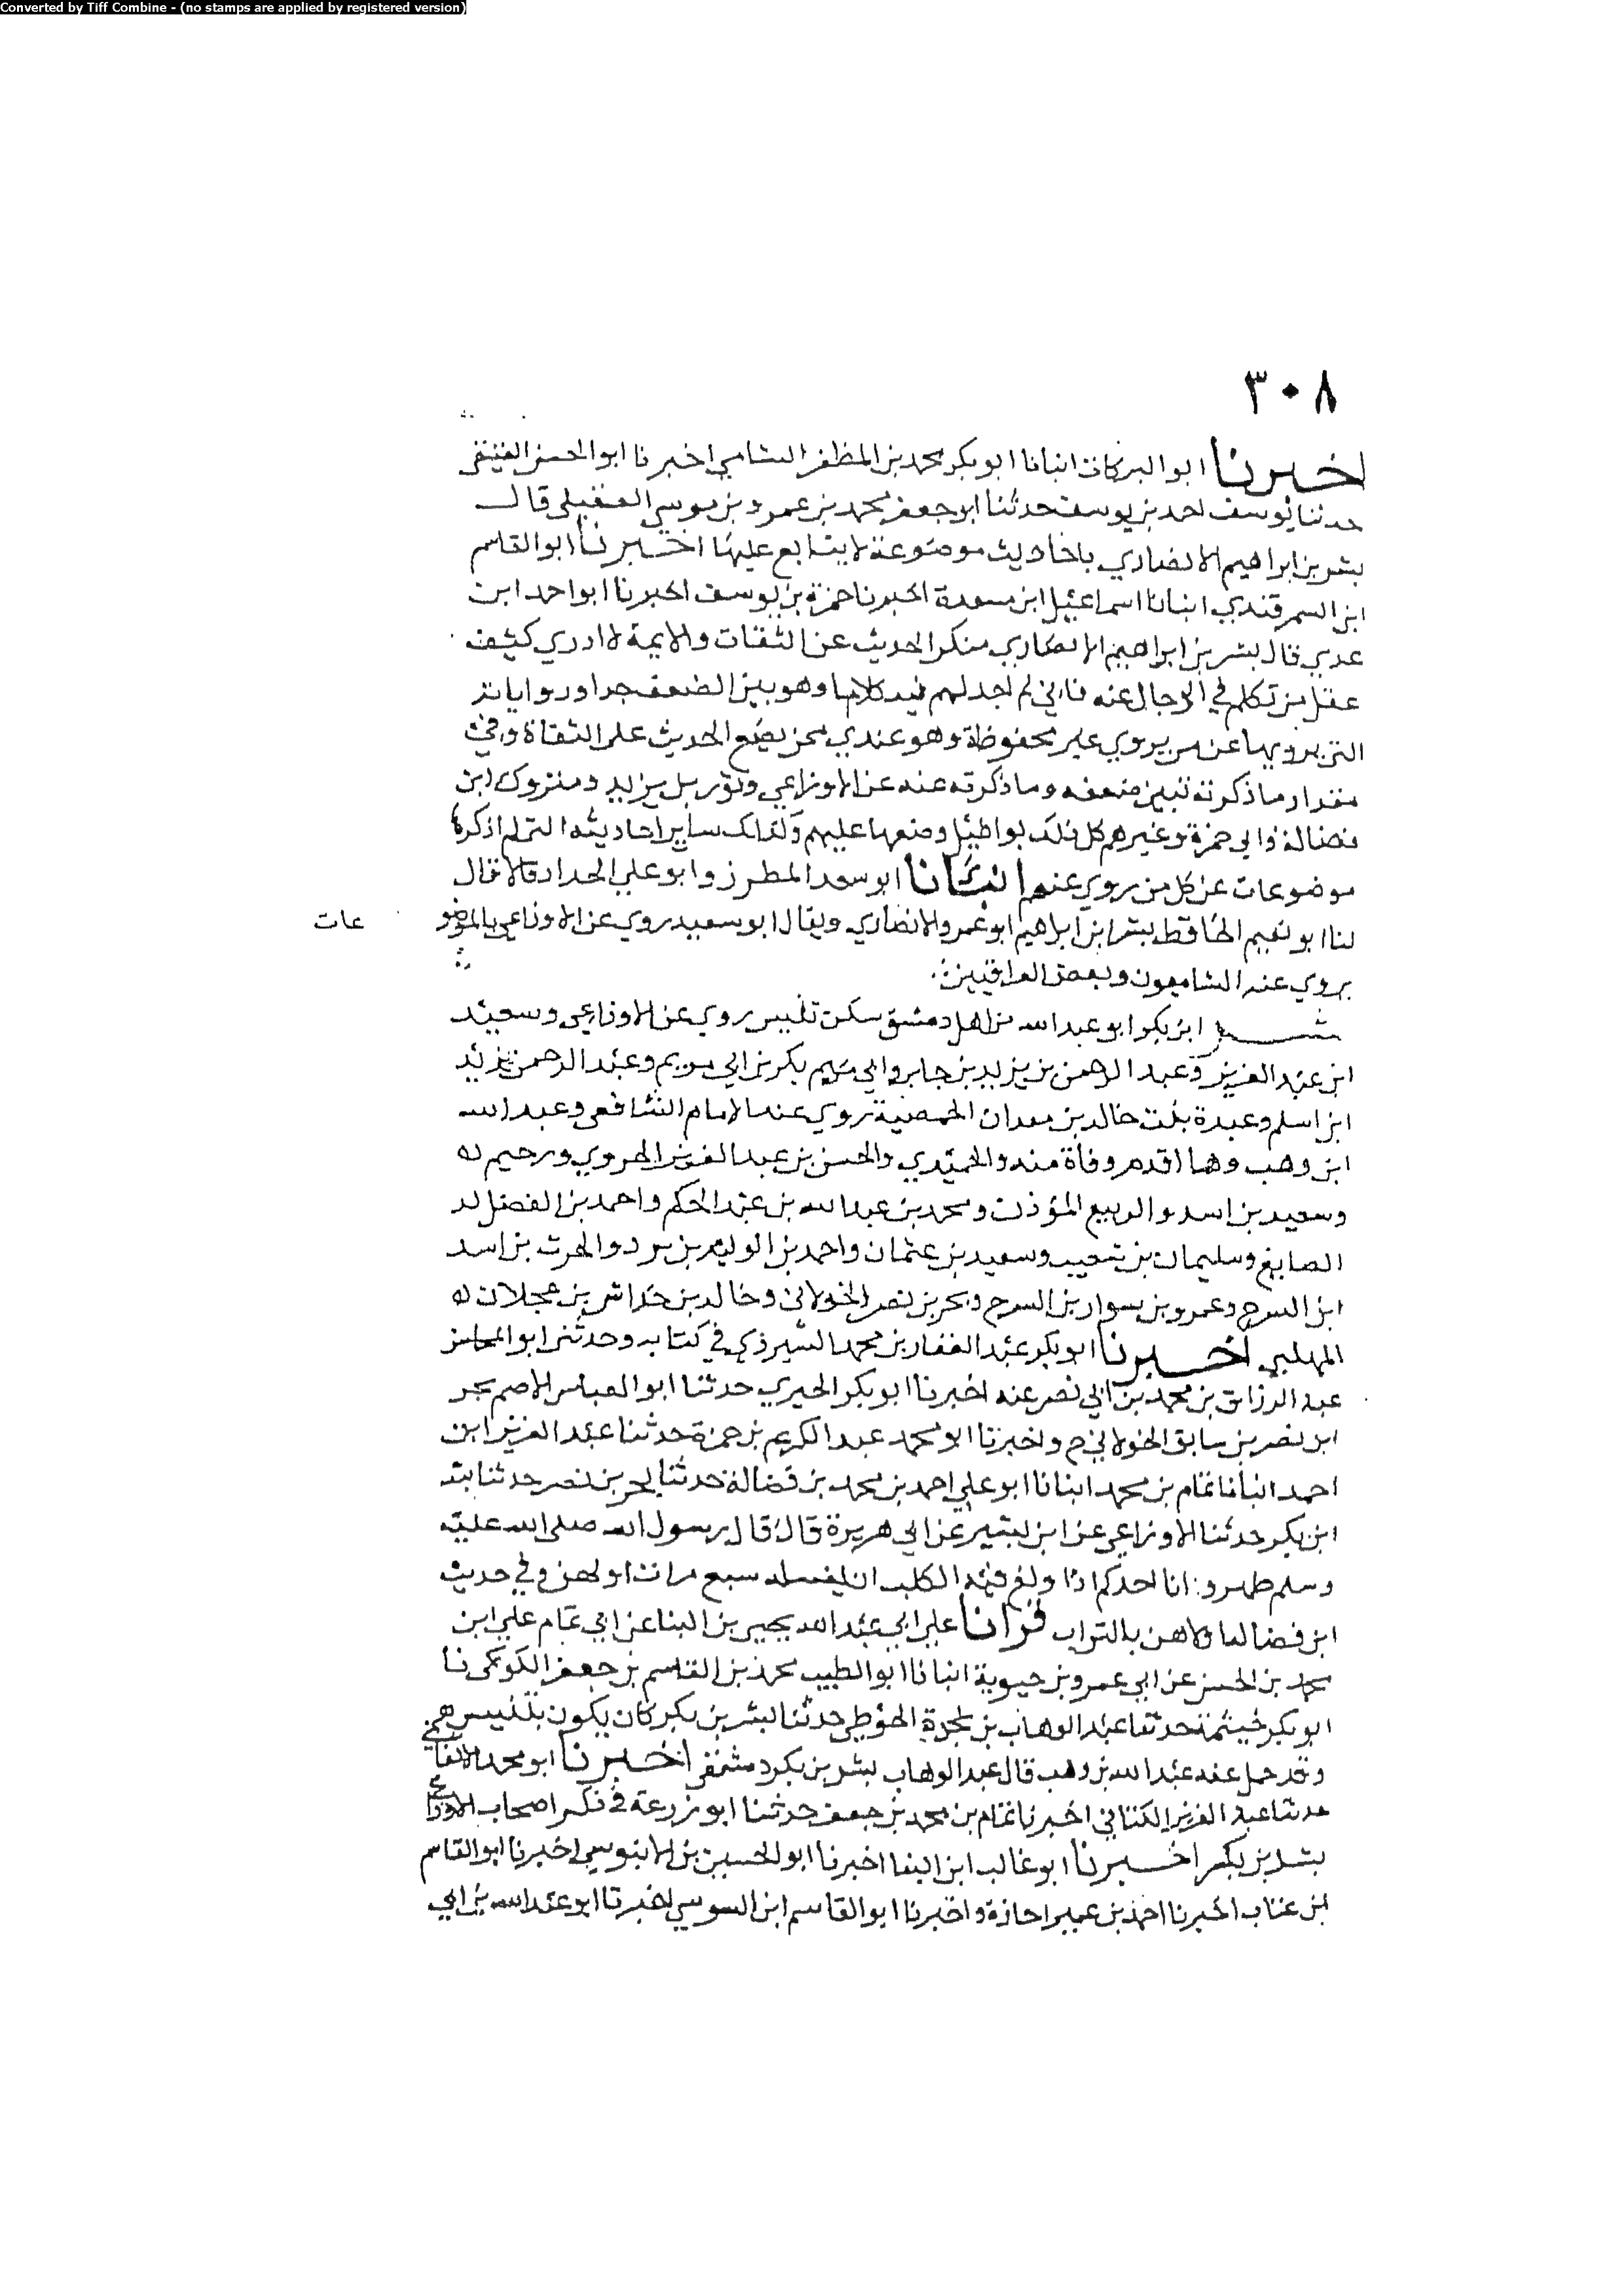 Converted by Tiff Combine - (no stamps are applied by registered version)
٣٠٨
اخبرنا ابو البركات انبانا ابو بكر محمد بن المظفر الشامي اخبرنا ابو الحسن العتيقي
حدثنا يوسف احمد بن يوسف حدثنا ابو جعفر محمد بن عمرو بن موسي العقيلي قال
بشر بن ابراهيم الانصاري باحاديث موضوعة لا يتابع عليها اخبرنا ابو القاسم
ابن السمرقندي انبانا اسماعيل ابن مسعدة اخبرنا حمزة بن يوسف اخبرنا ابو احمد ابن
عدي قال بشر بن ابراهيم الانصاري منكر الحديث عن الثقات والايمة لا ادري كيف
عقل من تكلم في الرجال عنه فاني لم اجد لهم فيه كلاما وهو بين الضعف جدا وروايات
التي يرويها عن من يروي غير محفوظة وهو عندي ممن يضع الحديث على الثقاة وفي
مقدار ما ذكرته تبين ضعفه وما ذكرته عنه عن الاوزاعي وثور بن يزيد ومبروك ابن
فضالة وابي حمزة وغيرهم كل ذلك بواطيل وضعها عليهم وكذلك ساير احاديثه التي لم اذكرها
موضوعات عن كل من روي عنهم انبانا ابو سعد المطرز وابو علي الحداد قالا قال
لنا ابو نعيم الحافظ بشر ابن ابراهيم ابو عمرو الانصاري ويقال ابو سعيد روي عن الاوزاعي بالموضو عات
يروي عنه الشاميون وبعض العراقيين
بشر ابن بكر ابو عبد الله من اهل دمشق سكن تنيس روي عن الاوزاعي وسعيد
ابن عبد العزيز وعبد الرحمن بن يزيد بن جابر وابي مريم بكر بن ابي مريم وعبد الرحمن بن زيد
ابن اسلم وعبدة بنت خالد بن معدان الحمصية روي عنه الامام الشافعي وعبد الله
ابن وهب وهما اقدم وفاة منه والحميدي والحسن بن عبد العزيز الجروي ودحيم
وسعيد بن اسد والربيع المؤذن ومحمد بن عبد الله بن عبد الحكم واحمد بن الفضل
الصايغ وسليمان بن شعيب وسعيد بن عثمان واحمد بن الوليد بن برد والحرث بن اسد
ابن السرح وعمرو بن سوار بن السرح وبحر بن نصر الخولاني وخالد بن خداش بن عجلان
المهلبي اخبرنا ابو بكر عبد الغفار بن محمد الشيرذي في كتابه وحدثني ابو المحاسن
عبد الرزاق بن محمد بن ابي نصر عنه اخبرنا ابو بكر الحيري حدثنا ابو العباس الاصم بحر
ابن نصر بن سابق الخولاني ح واخبرنا ابو محمد عبد الكريم بن حمزة حدثنا عبد العزيز ابن
احمد انبانا تمام بن محمد انبانا ابو علي احمد بن محمد بن فضالة حدثنا بحر بن نصر حدثنا بشر
ابن بكر حدثنا الاوزاعي عن ابن بشير عن ابي هريرة قال قال رسول الله صلى الله عليه
وسلم طهور انا احدكم اذا ولغ فيه الكلب ان يغسله سبع مرات اولهن وفي حديث
ابن فضالة اولاهن بالتراب قرانا علي ابي عبد الله يحيى بن البنا عن ابي تمام علي ابن
محمد بن الحسن عن ابي عمرو بن حيوية انبانا ابو الطيب محمد بن القاسم بن جعفر الكوكبي نا
ابو بكر خيثمة حدثنا عبد الوهاب بن نجدة الحوطي حدثنا بشر بن بكر كان يكون بتنيس
وقد حمل عنه عبد الله بن وهب قال عبد الوهاب بشر بن بكر دمشقي اخبرنا ابو محمد الاكفاني
حدثنا عبد العزيز الكتاني اخبرنا تمام بن محمد بن جعفر حدثنا ابو زرعة في ذكر اصحاب الاوزاعي
بشر بن بكر اخبرنا ابو غالب ابن البنا اخبرنا ابو الحسين بن الابنوسي اخبرنا ابو القاسم
ابن عتاب اخبرنا احمد بن عمير اجازة واخبرنا ابو القاسم ابن السوسي اخبرنا ابو عبد الله بن ابي